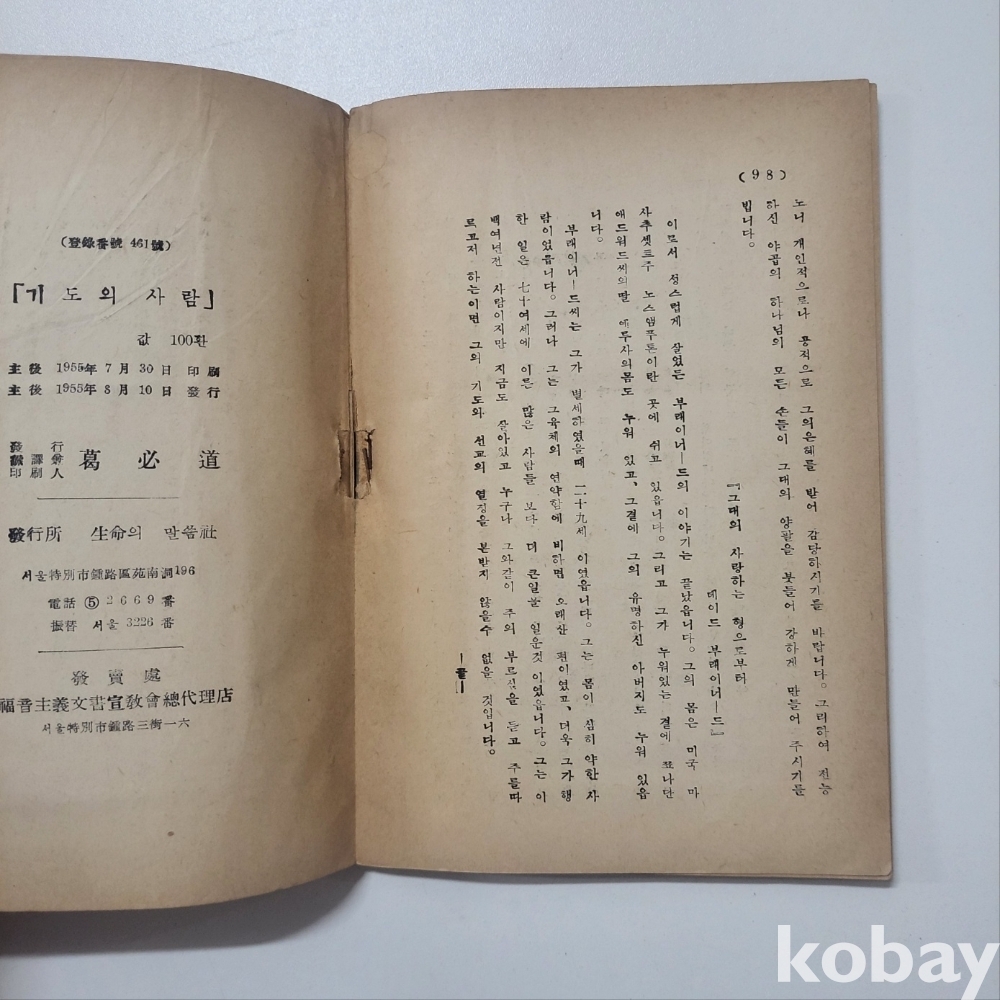 (98)
노니 개인적으로나 공적으로 그의은혜를 받어 감당하시기를 바랍니다. 그리하여 전능
하신 야곱의 하나님의 모든 손들이 그대의 양팔을 붓들어 강하게 만들어 주시기를
빕니다.
『그대의 사랑하는 형으로부터
데이드 부래이너―드』
이로서 성스럽게 살었든 부래이너―드의 이야기는 끝났읍니다. 그의 몸은 미국 마
사추셋트주 노스앰푸톤이란 곳에 쉬고 있읍니다. 그리고 그가 누워있는 곁에 쬬나단
애드워드씨의딸 에루사의몸도 누워 있고, 그곁에 그의 유명하신 아버지도 누워 있읍
니다.
부래이너―드씨는 그가 별세하였을때 二十九세 이였읍니다. 그는 몸이 심히 약한 사
람이였읍니다. 그러나 그는 그육체의 연약함에 비하면 오래산 편이였고, 더욱 그가 행
한 일은 七十여세에 이른 많은 사람들 보다 더 큰일을 일운것 이였읍니다. 그는 이
백여년전 사람이지만 지금도 살아있고 누구나 그와같이 주의 부르심을 듣고 주를따
르고저 하는이면 그의 기도와 선교의 열정을 본받지 않을수 없을 것입니다.
―끝―
(登錄番號 461號)
「기도의 사람」
값 100환
主後 1955年 7月 30日 印刷
主後 1955年 8月 10日 發行
發行
飜譯兼
印刷人
葛必道
發行所 生命의 말씀社
서울特別市鍾路區苑南洞196
電話 ⑤ 2669番
振替 서울 3226番
發賣處
福音主義文書宣敎會總代理店
서울特別市鍾路三街一六
kobay